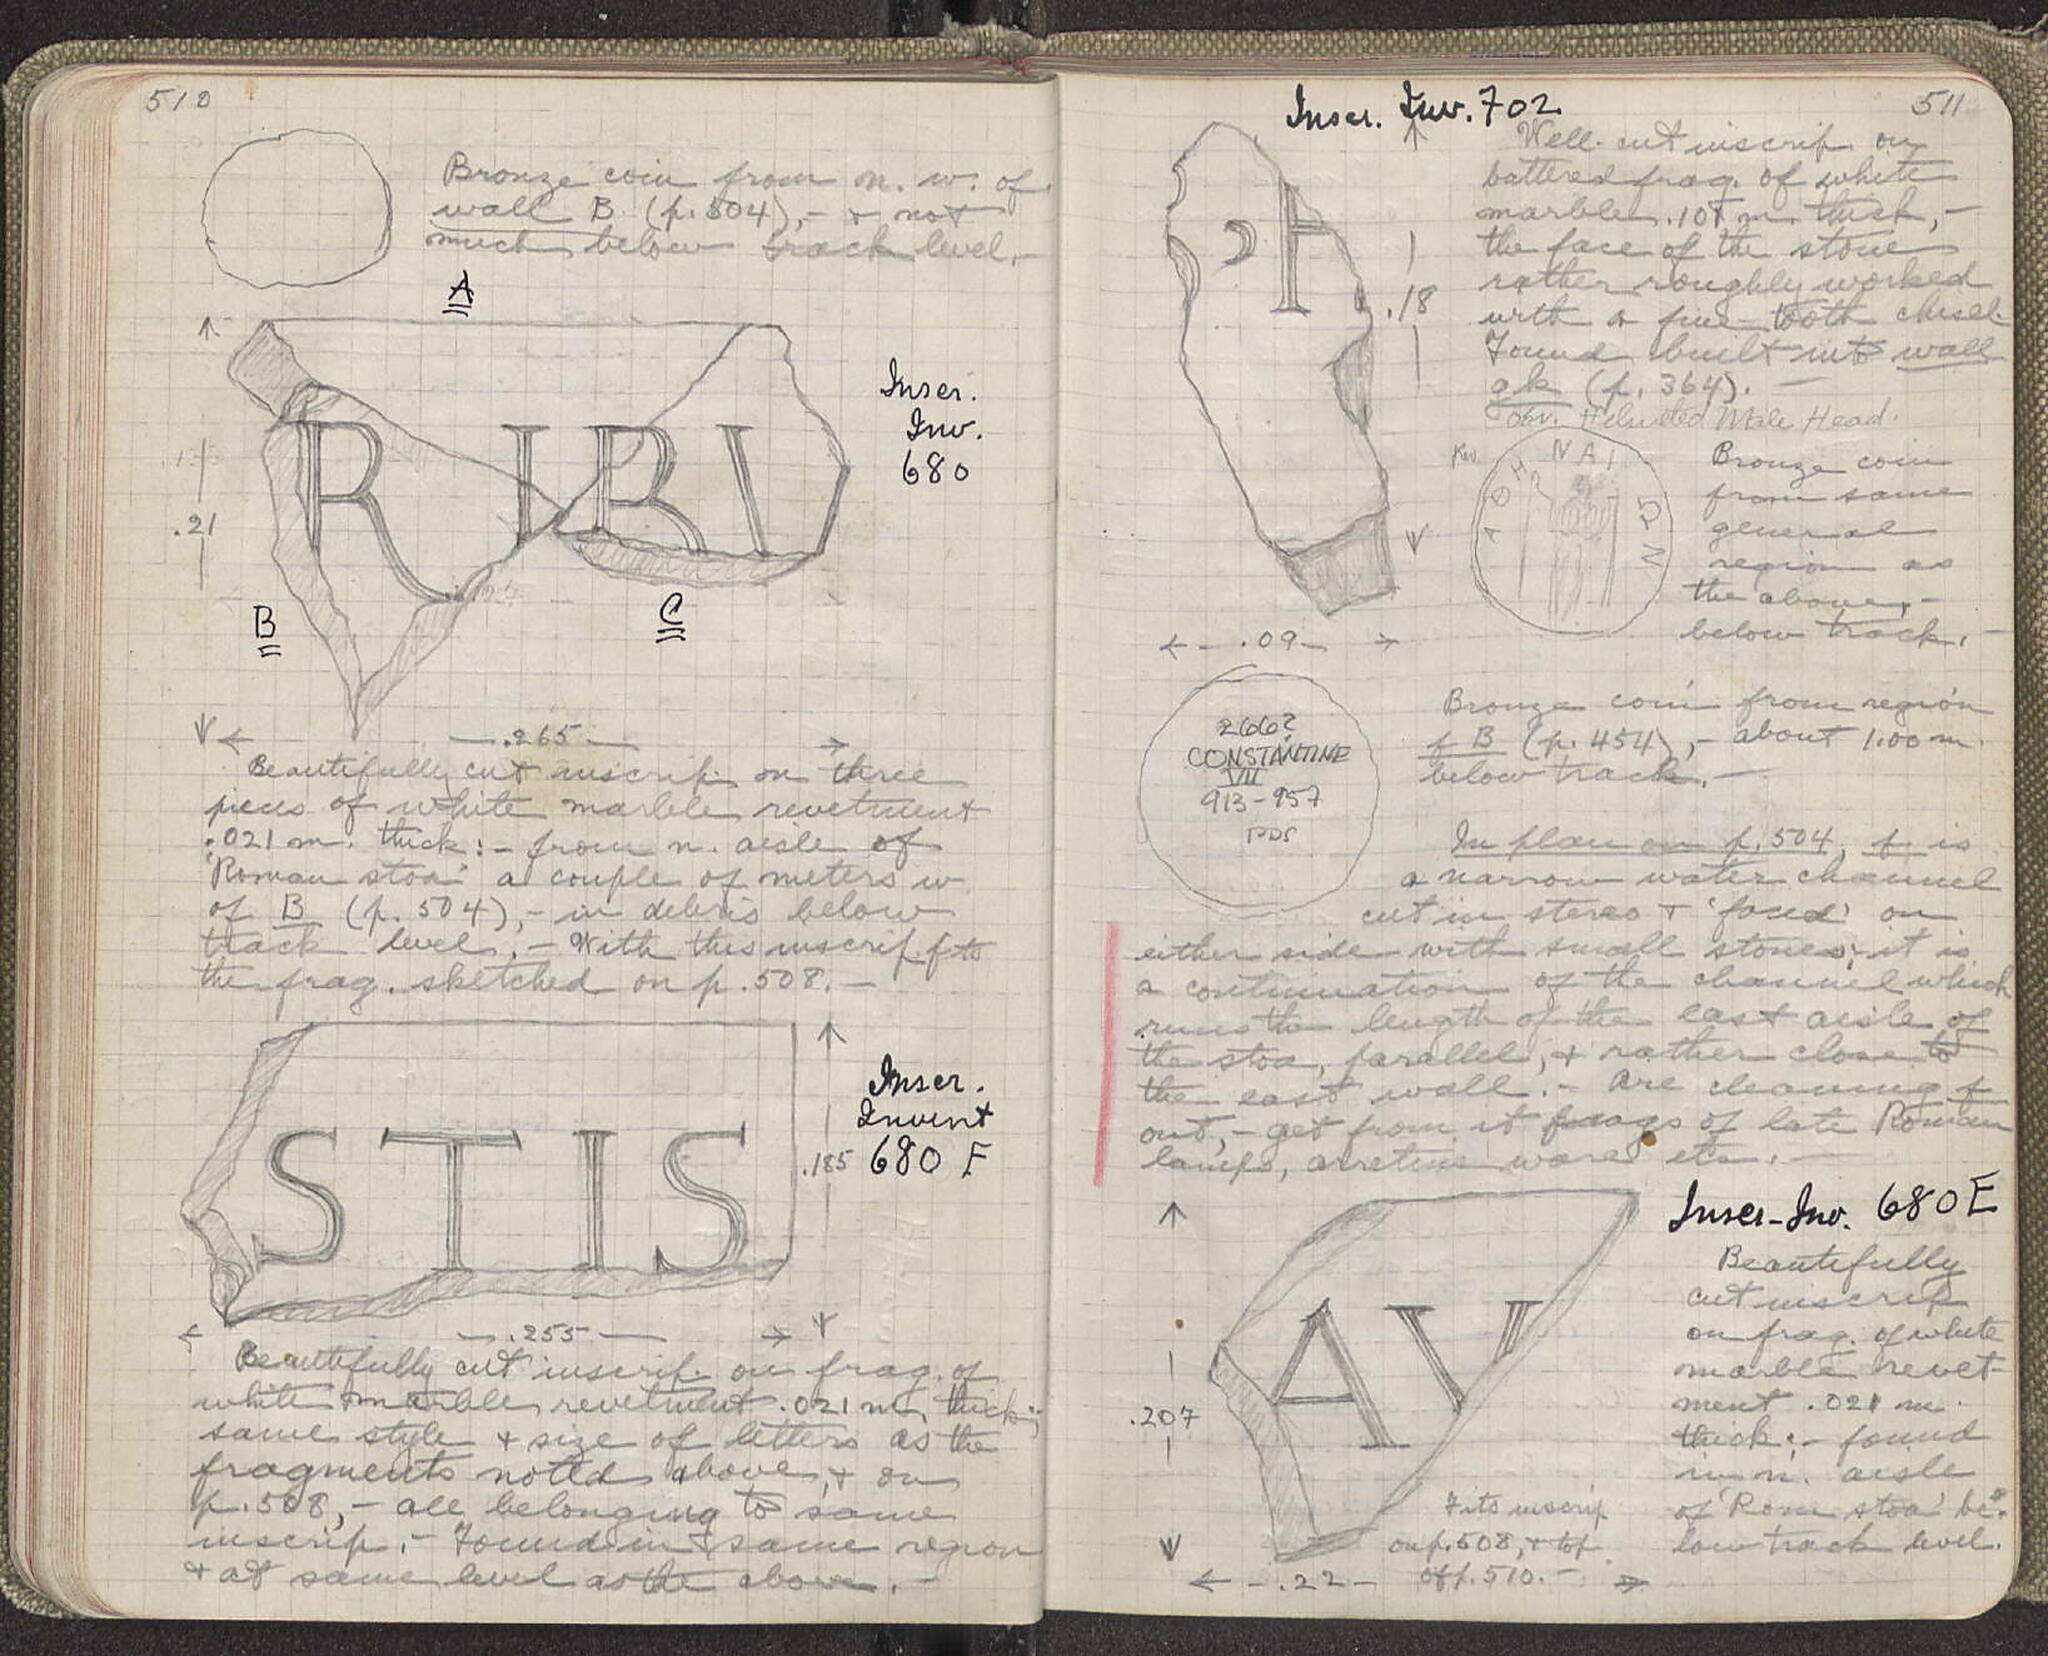 510
Bronze coin from n. w. of
wall B (p. 504), – & not
much below track level. –
A
R I B I
Inscr.
Inv.
680
.21
B
C
.265
Beautifully cut inscrip. on three
pieces of white marble revetment
.021 m. thick: – from n. aisle of
'Roman stoa' a couple of meters w.
of B (p. 504), – in debris below
track level. – With this inscrip. fits
the frag. sketched on p. 508. –
S T I S
Inscr.
Invent
.185 680 F
.255
Beautifully cut inscrip. on frag. of
white marble revetment .021 m. thick;
same style & size of letters as the
fragments noted above, & on
p. 508, – all belonging to same
inscrip. – Found in same region
& at same level as the above. –
511
Inscr. Inv. 702
Well-cut inscrip. on
battered frag. of white
marble .107 m. thick, –
the face of the stone
rather roughly worked
with a fine-tooth chisel.
Found built into wall
gk (p. 364). –
.18
.09
Obv. Helmeted Male Head.
Rev
ΑΘΗ ΝΑΙ ΩΝ
Bronze coin
from same
general
region as
the above, –
below track. –
266?
CONSTANTINE
VII
913-957
Bronze coin from region
f B (p. 454), – about 1.00 m.
below track. –
In plan on p. 504, f is
a narrow water channel
cut in stereo & 'faced' on
either side with small stones; it is
a continuation of the channel which
runs the length of the east aisle of
the stoa, parallel, & rather close to
the east wall. – Are cleaning f
out, – get from it frags of late Roman
lamps, arretine ware etc. –
Inscr-Inv. 680 E
A V
Beautifully
cut inscrip
on frag. of white
marble revet-
ment .021 m.
thick: – found
in n. aisle
of 'Rom stoa' be-
low track level.
.207
Fits inscrip
on p. 508, & top
of p. 510. –
.22